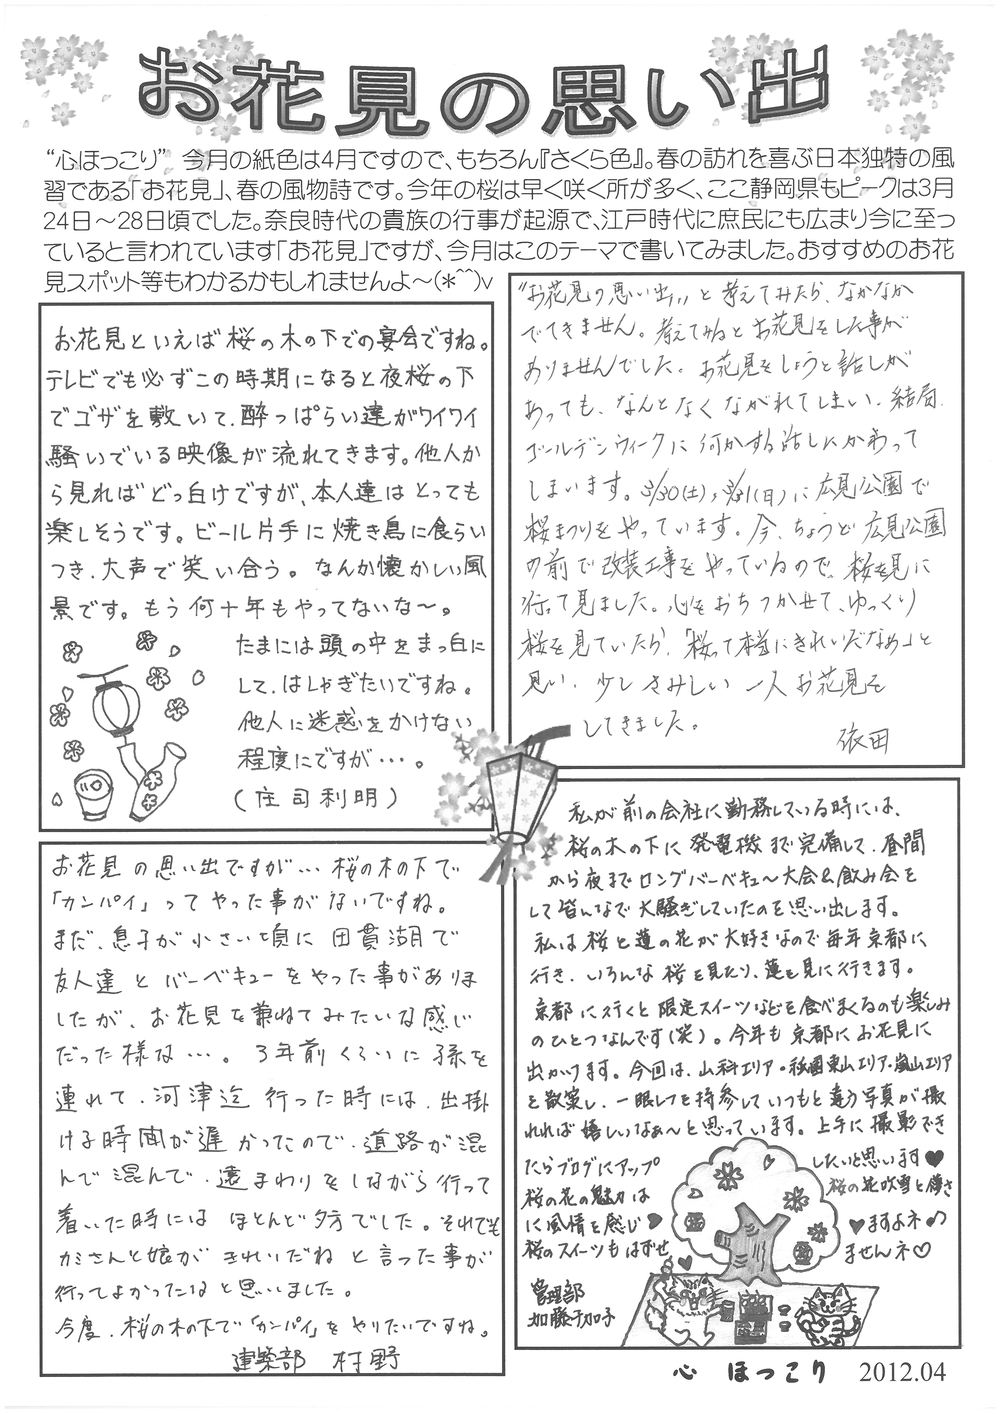 お花見の思い出
“心ほっこり” 今月の紙色は4月ですので、もちろん『さくら色』。春の訪れを喜ぶ日本独特の風
習である「お花見」、春の風物詩です。今年の桜は早く咲く所が多く、ここ静岡県もピークは3月
24日～28日頃でした。奈良時代の貴族の行事が起源で、江戸時代に庶民にも広まり今に至っ
ていると言われています「お花見」ですが、今月はこのテーマで書いてみました。おすすめのお花
見スポット等もわかるかもしれませんよ～(*^^)v
お花見といえば桜の木の下での宴会ですね。
テレビでも必ずこの時期になると夜桜の下
でゴザを敷いて、酔っぱらい達がワイワイ
騒いでいる映像が流れてきます。他人か
ら見ればどっ白けですが、本人達はとっても
楽しそうです。ビール片手に焼き鳥に食らい
つき、大声で笑い合う。なんか懐かしい風
景です。もう何十年もやってないな～。
たまには頭の中をまっ白に
して、はしゃぎたいですね。
他人に迷惑をかけない
程度にですが…。
(庄司利明)
“お花見の思い出”と考えてみたら、なかなか
でてきません。考えてみるとお花見をした事が
ありませんでした。お花見をしようと話しが
あっても、なんとなくながれてしまい、結局、
ゴールデンウィークに何かする話しにかわって
しまいます。3/30(土)、3/31(日)に広見公園で
桜まつりをやっています。今、ちょうど広見公園
の前で改装工事をやっているので、桜を見に
行って見ました。心をおちつかせて、ゆっくり
桜を見ていたら、「桜って本当にきれいだなぁ」と
思い、少しさみしい一人お花見を
してきました。
依田
お花見の思い出ですが…桜の木の下で
「カンパイ」ってやった事がないですね。
まだ、息子が小さい頃に田貫湖で
友人達とバーベキューをやった事がありま
したが、お花見を兼ねてみたいな感じ
だった様な…。3年前くらいに孫を
連れて、河津迄行った時には、出掛
ける時間が遅かったので、道路が混
んで混んで、遠まわりをしながら行って
着いた時にはほとんど夕方でした。それでも
カミさんと娘がきれいだねと言った事が
行ってよかったなと思いました。
今度、桜の木の下で「カンパイ」をやりたいですね。
建築部 村野
私が前の会社に勤務している時には、
桜の木の下に発電機まで完備して、昼間
から夜までロングバーベキュー大会&飲み会を
して皆んなで大騒ぎしていたのを思い出します。
私は桜と蓮の花が大好きなので毎年京都に
行き、いろんな桜を見たり、蓮を見に行きます。
京都に行くと限定スイーツなどを食べまくるのも楽しみ
のひとつなんです(笑)。今年も京都にお花見に
出かけます。今回は、山科エリア・祇園東山エリア・嵐山エリア
を散策し、一眼レフを持参していつもと違う写真が撮
れれば嬉しいなぁ～と思っています。上手に撮影でき
たらブログにアップ したいと思います♥
桜の花の魅力は 桜の花吹雪と儚さ
に風情を感じ♥ ♥ますよネ♪
桜のスイーツもはずせ ませんネ♡
管理部
加藤千加子
心 ほっこり 2012.04